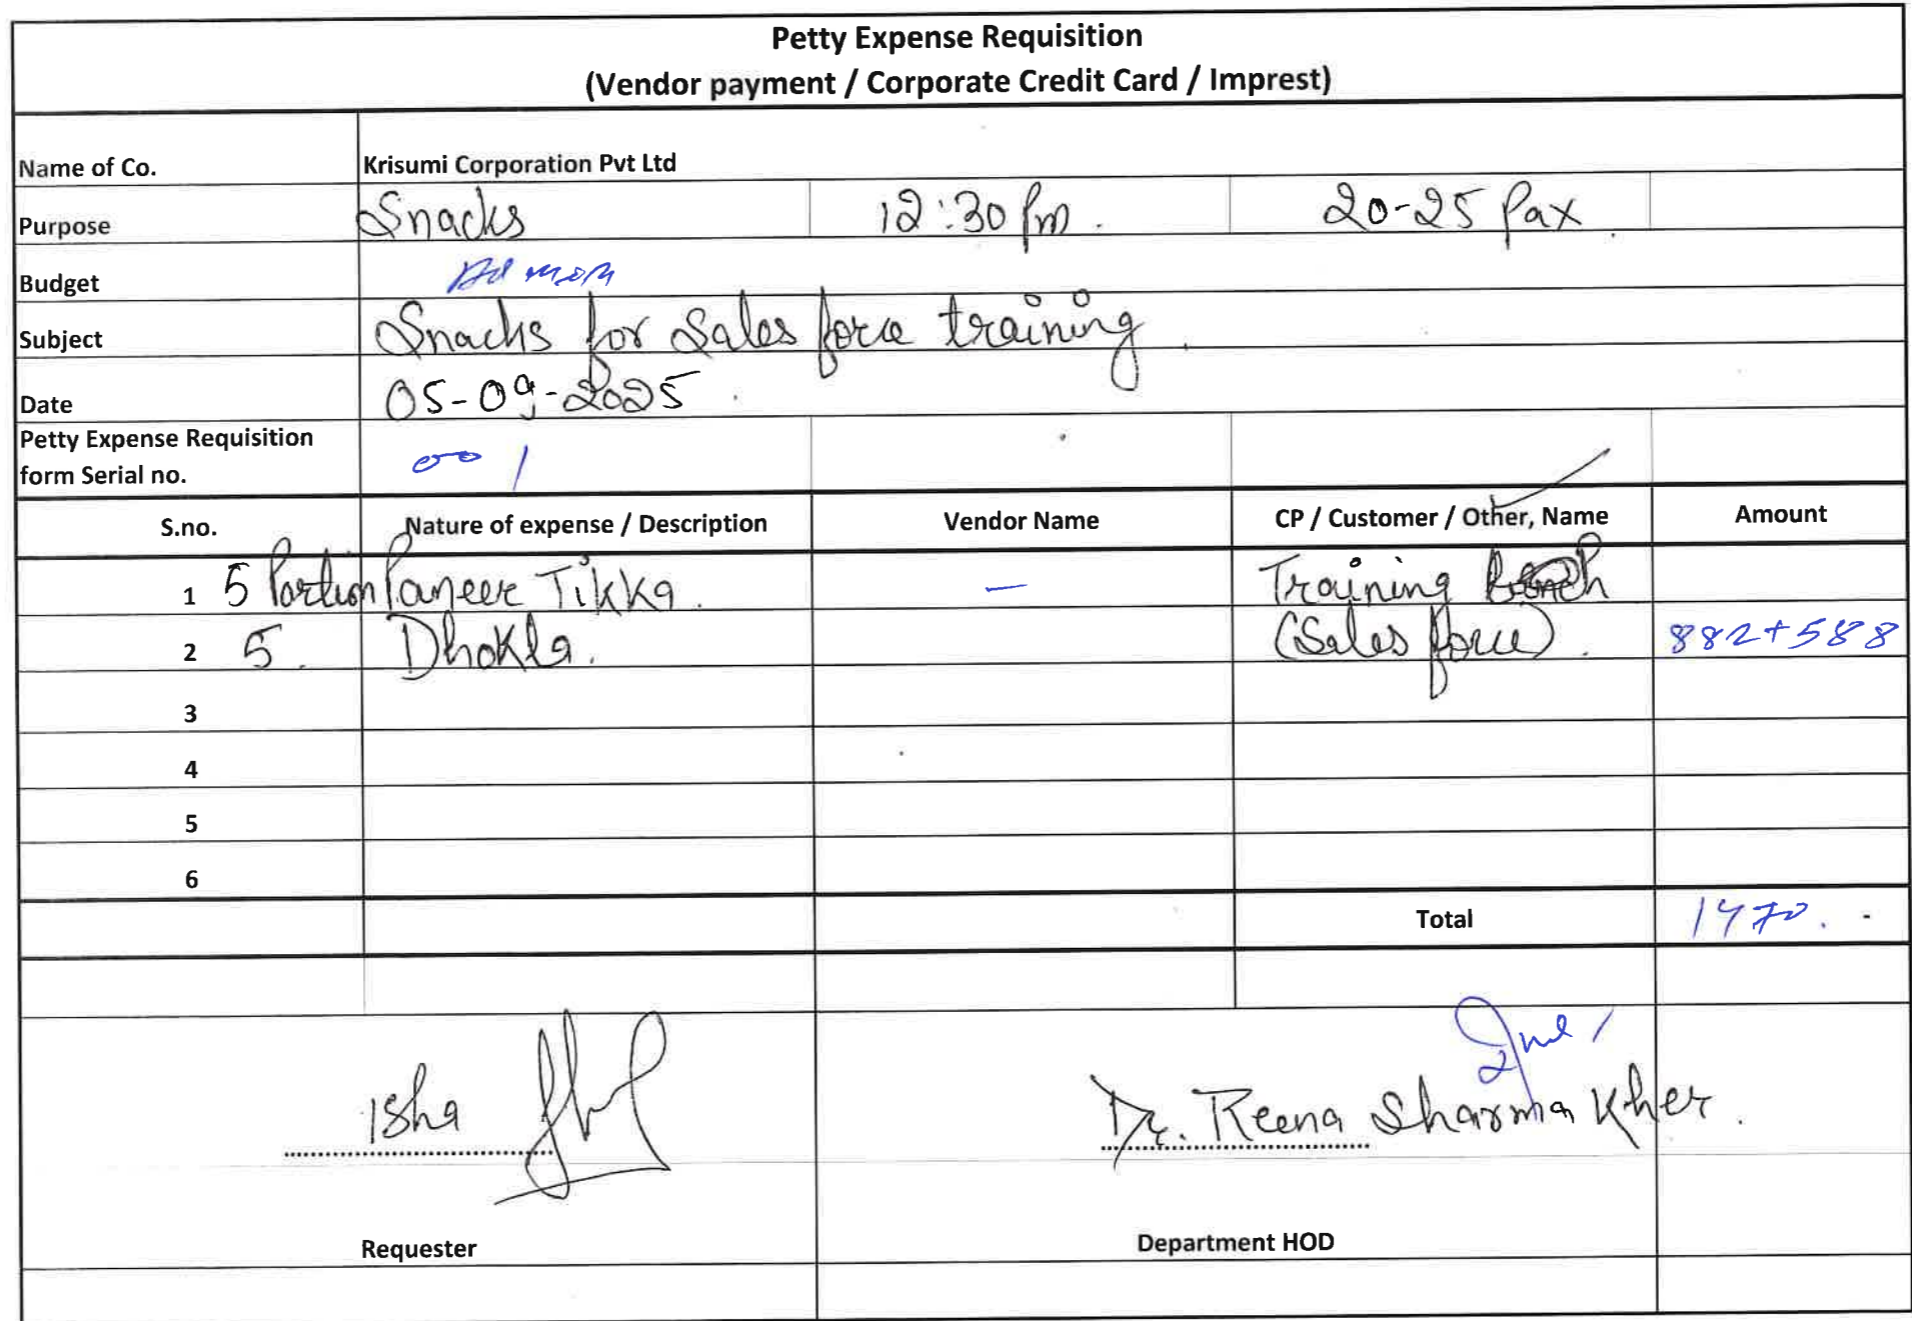 Petty Expense Requisition
(Vendor payment / Corporate Credit Card / Imprest)
Name of Co. Krisumi Corporation Pvt Ltd
Purpose Snacks 12:30 Pm. 20-25 Pax
Budget
Subject Snacks for Sales force training
Date 05-09-2025
Petty Expense Requisition
form Serial no. 001
S.no. Nature of expense / Description Vendor Name CP / Customer / Other, Name Amount
1 5 Portion Paneer Tikka. — Training
2 5. Dhokla. (Sales force). 882+588
3
4
5
6
Total 1470. -
Isha Dr. Reena Sharma Kher.
Requester Department HOD